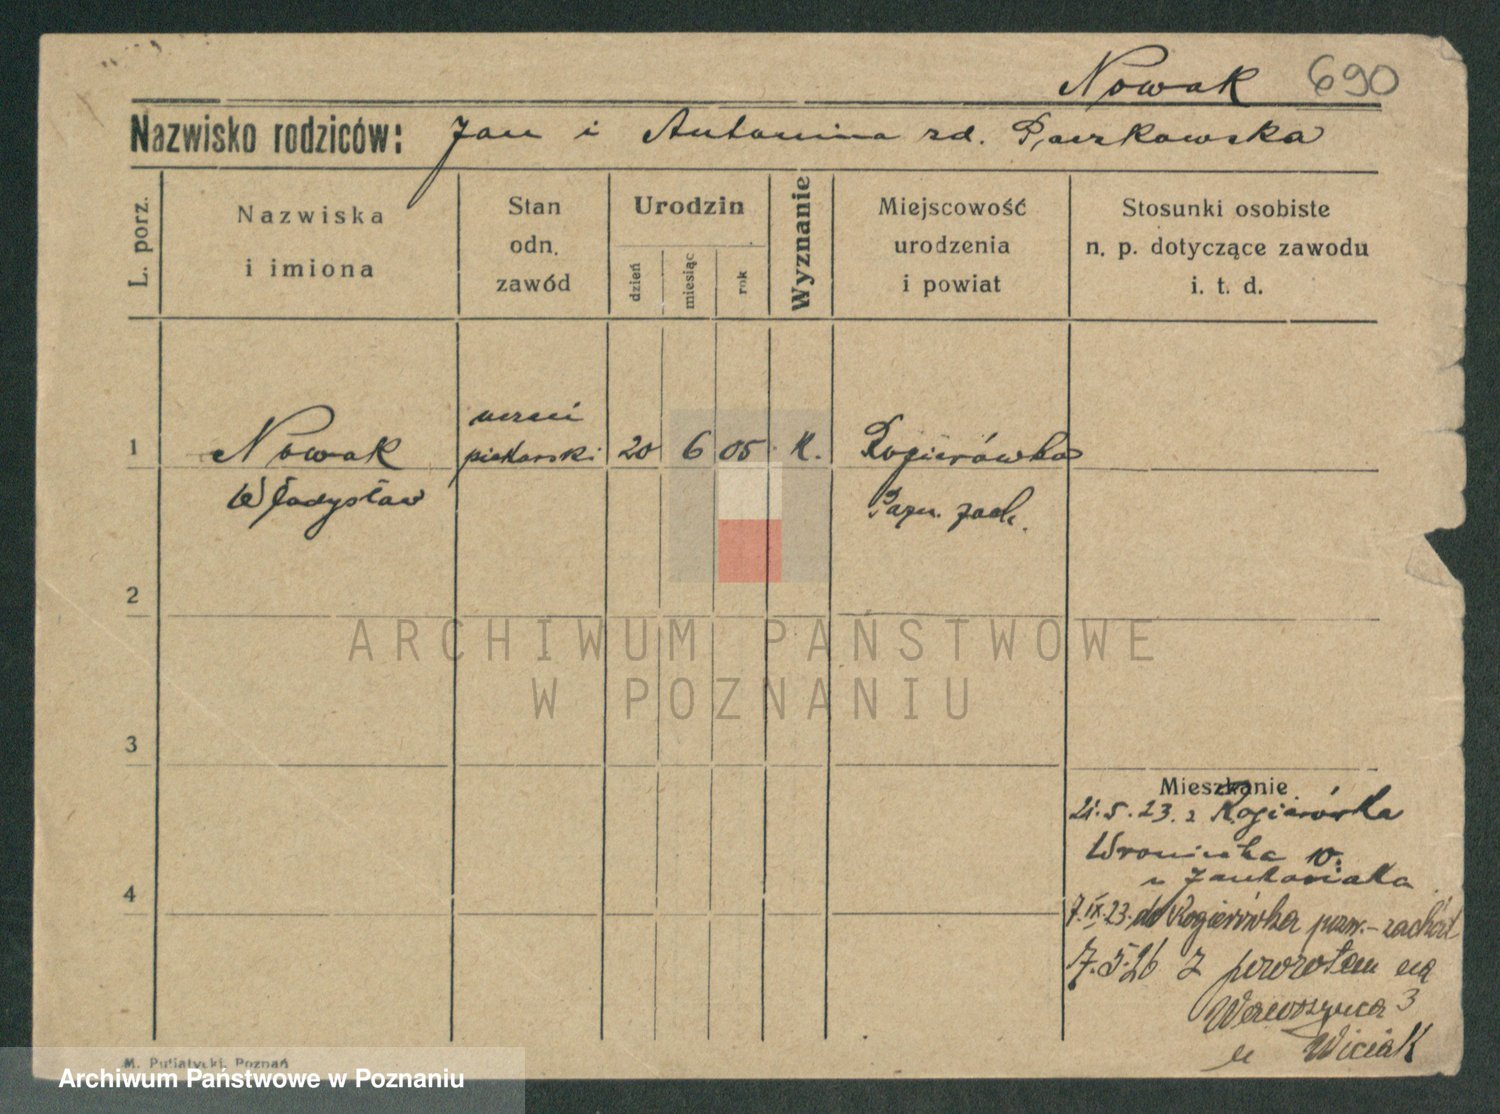 Nowak 690
Nazwisko rodziców: Jan i Antonina zd. Paczkowska
L. porz.
Nazwiska
i imiona
Stan
odn.
zawód
Urodzin
dzień
miesiąc
rok
Wyznanie
Miejscowość
urodzenia
i powiat
Stosunki osobiste
n. p. dotyczące zawodu
i. t. d.
1 Nowak
Władysław
uczeń
piekarski
20 6 05 K.
Rogierówka
Pozn. zach.
2
ARCHIWUM PAŃSTWOWE
W POZNANIU
3
Mieszkanie
21.5.23. z Rogierówka
Wroniecka 10.
u Jankowiaka
4
7.IX.23. do Rogierówka pozn.-zachód
17.5.26 z powrotem na
3
u Wiciak
M. Putiatycki, Poznań
Archiwum Państwowe w Poznaniu